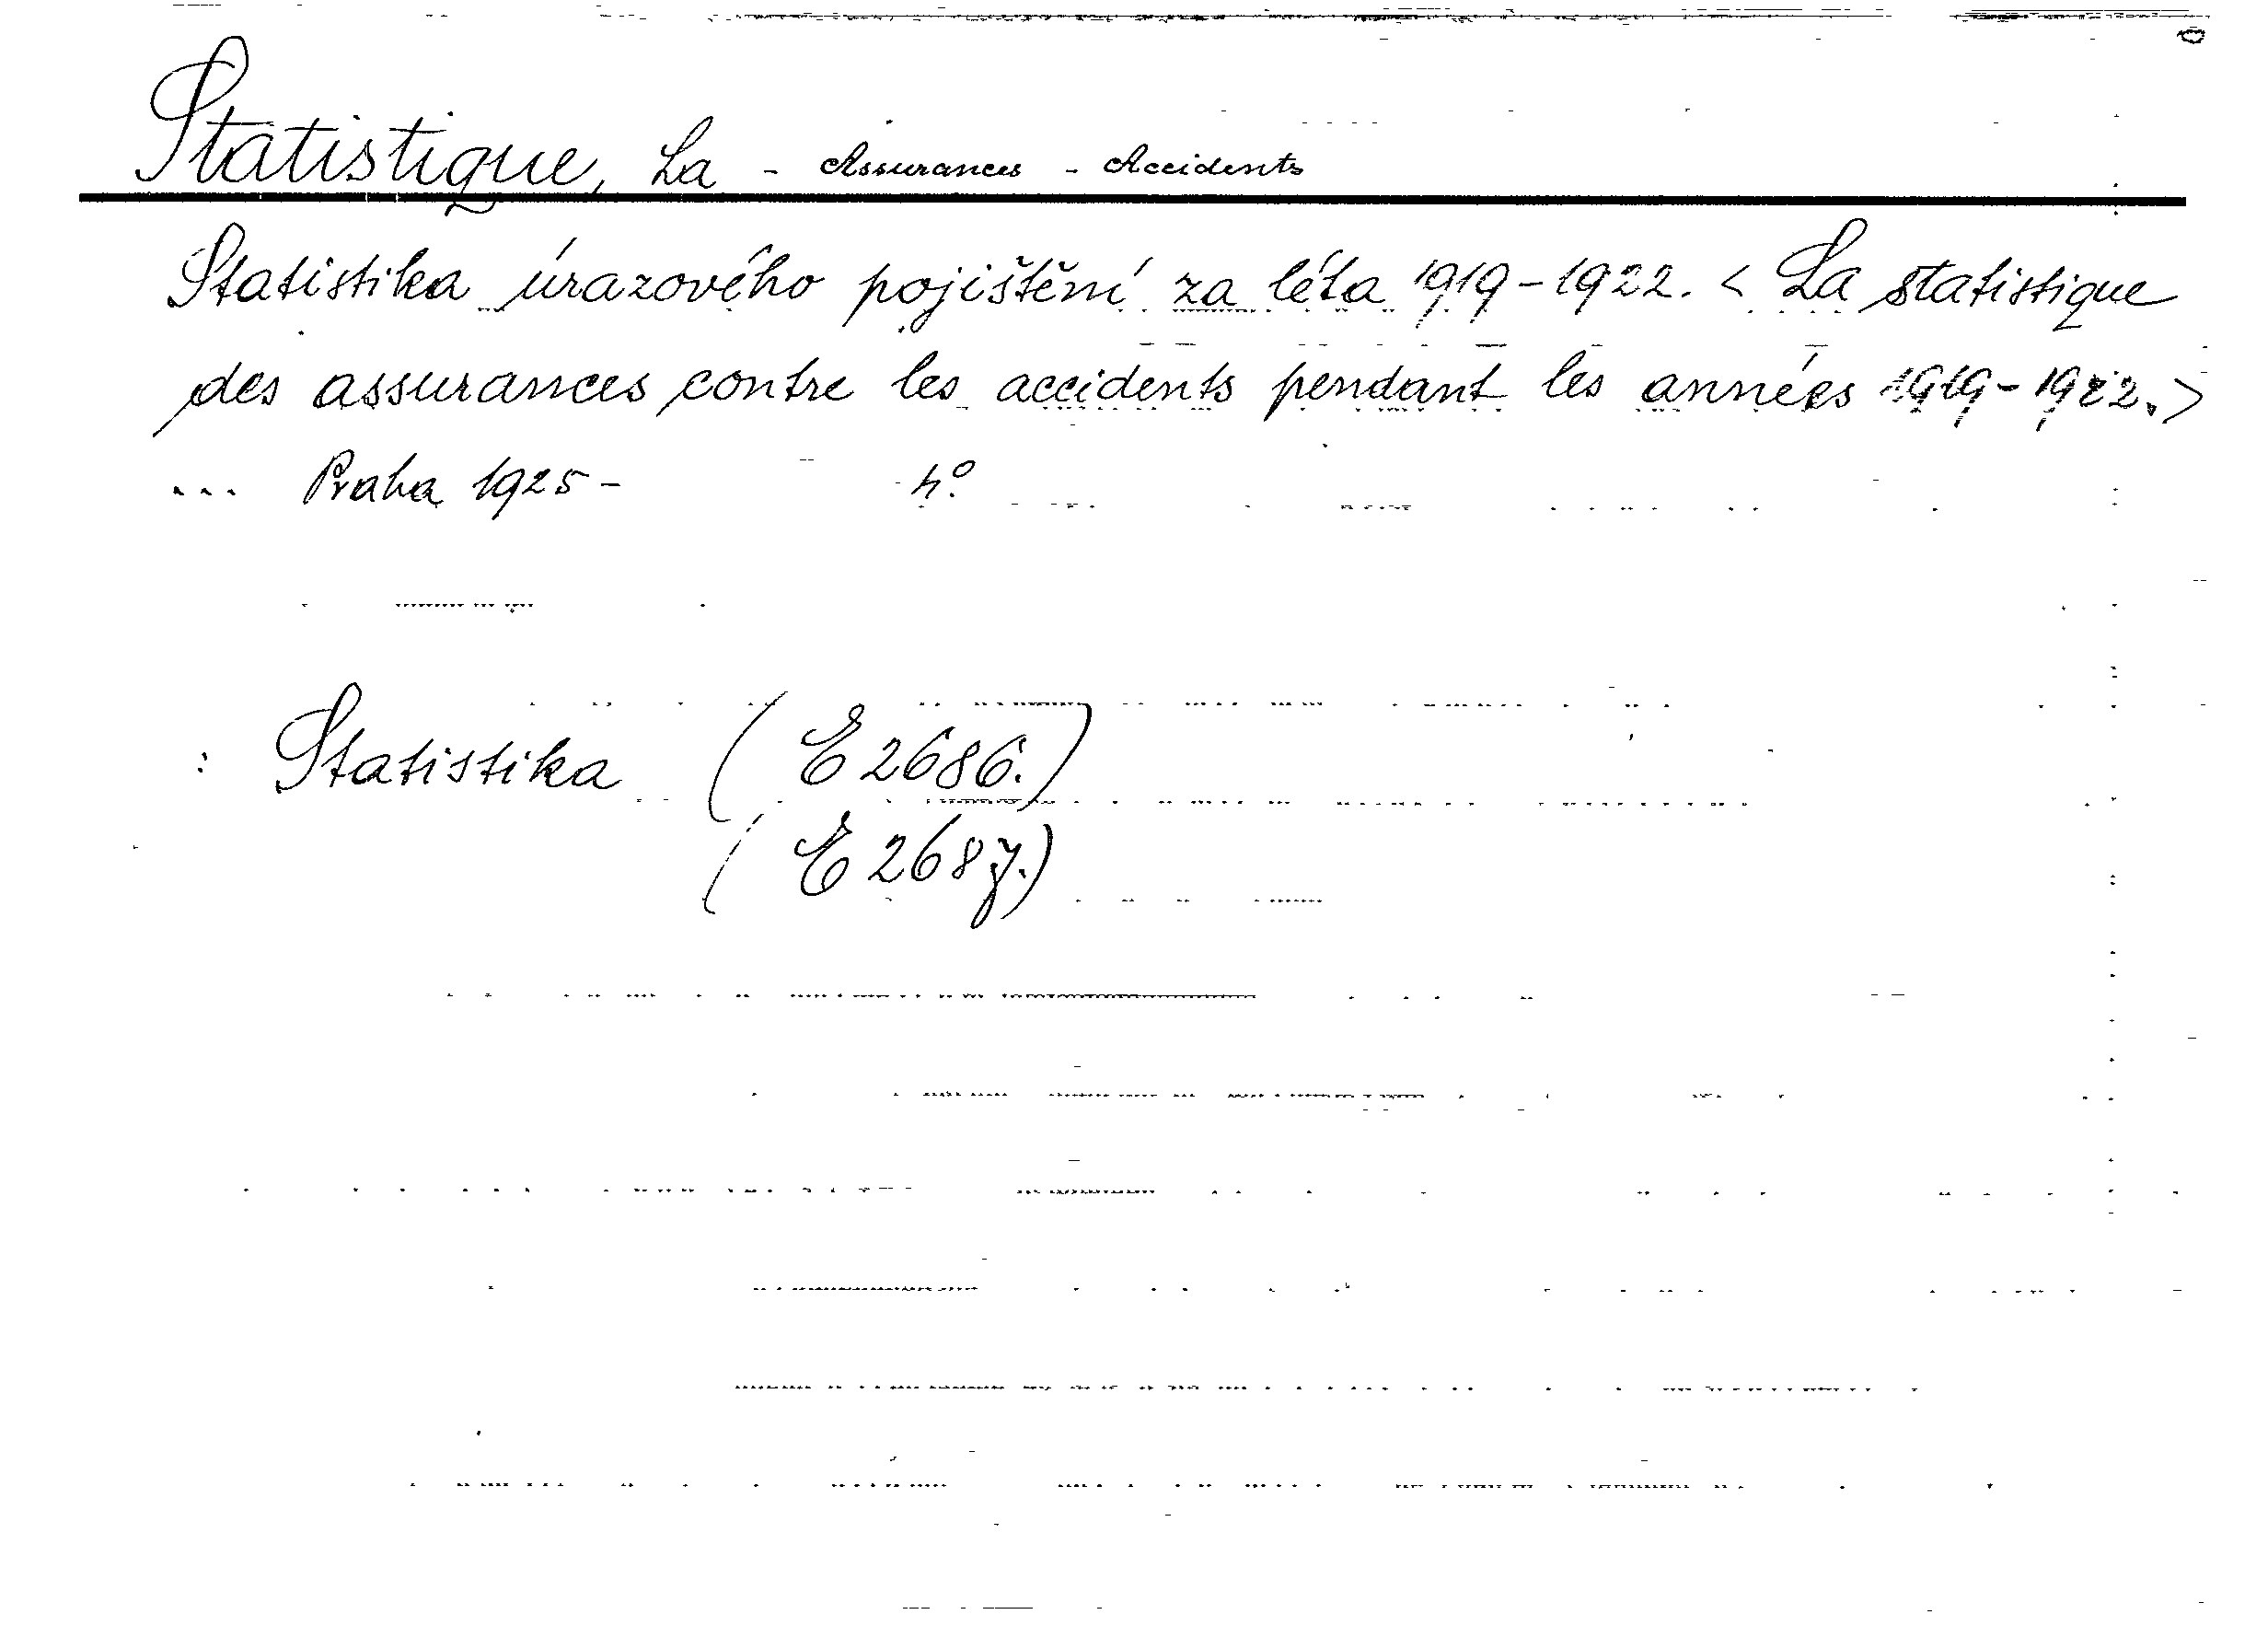 Statistique, La - Assurances - Accidents
Statistika úrazového pojištění za léta 1919-1922. < La statistique
des assurances contre les accidents pendant les années 1919-1922. >
... Praha 1925- 4°.
: Statistika (E 2686.)
(E 2687.)